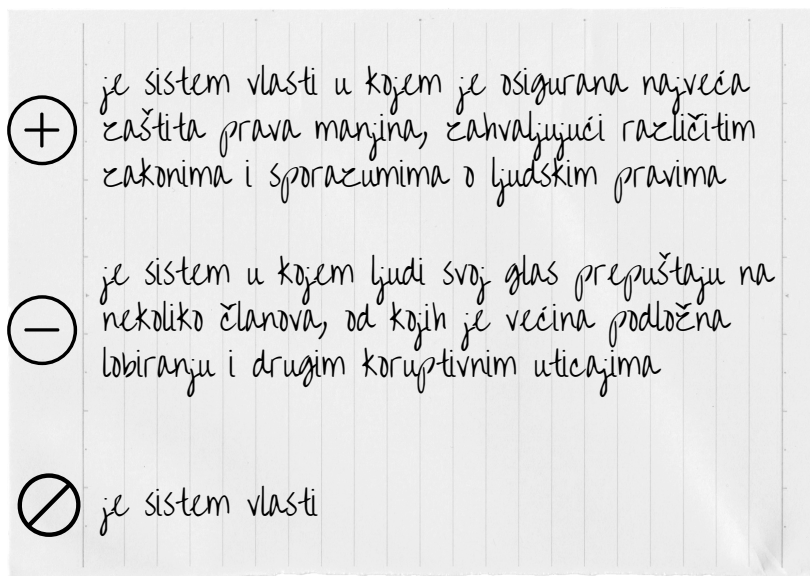 je sistem vlasti u kojem je osigurana najveća
zaštita prava manjina, zahvaljujući različitim
zakonima i sporazumima o ljudskim pravima
je sistem u kojem ljudi svoj glas prepuštaju na
nekoliko članova, od kojih je većina podložna
lobiranju i drugim koruptivnim uticajima
je sistem vlasti